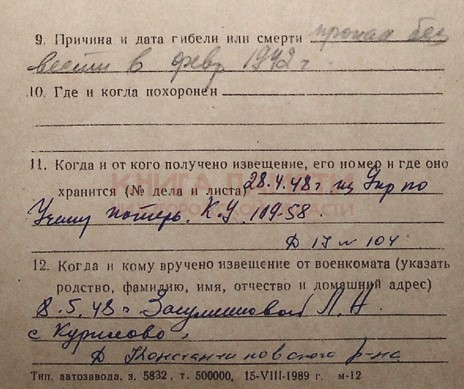 9. Причина и дата гибели или смерти пропал без
вести в февр 1942 г
10. Где и когда похоронен
11. Когда и от кого получено извещение, его номер и где оно
КНИГА ПАМЯТИ
хранится (№ дела и листа) 28.4.48 г из Упр по
Учету потерь. К.У. 109-58.
Д 17 л 104
12. Когда и кому вручено извещение от военкомата (указать
родство, фамилию, имя, отчество и домашний адрес)
8.5.48 г
с Курилово,
Д Константиновского р-на
Тип. автозавода. з. 5832, т. 500000, 15-VIII-1989 г. м-12